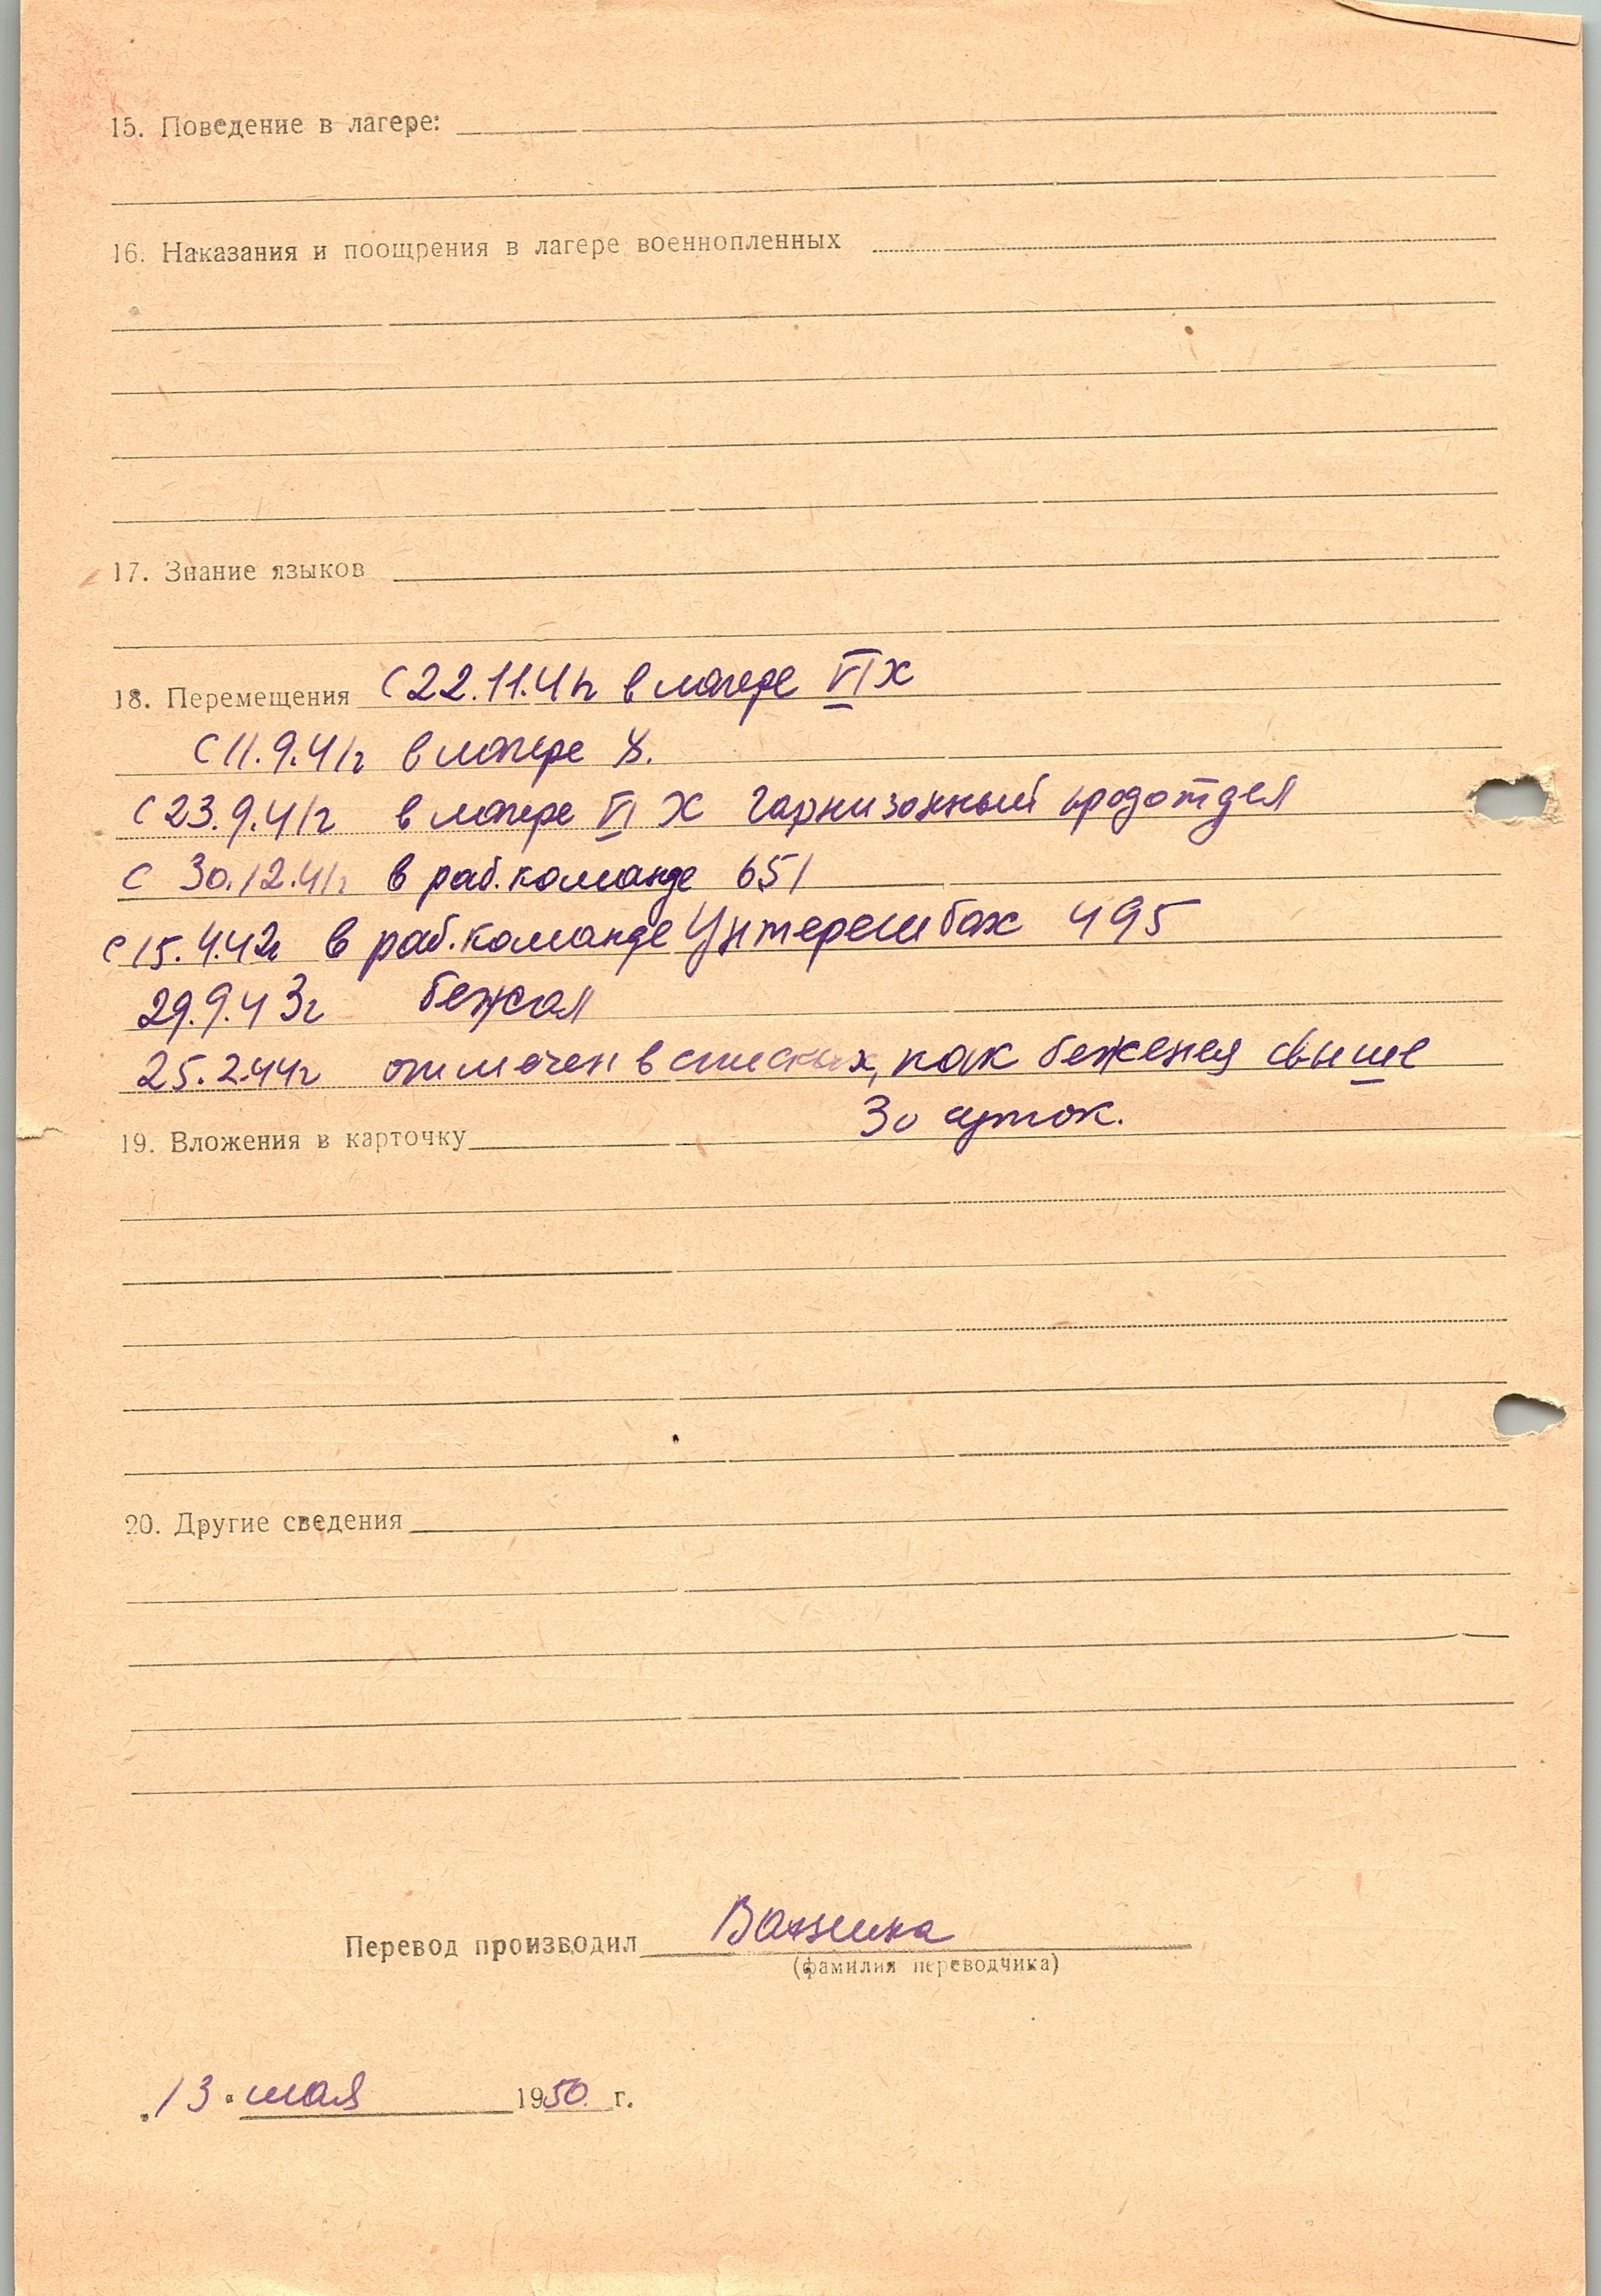 15. Поведение в лагере:
16. Наказания и поощрения в лагере военнопленных
17. Знание языков
18. Перемещения С 22.11.41г в лагере VI К
С 11.9.41г в лагере X.
С 23.9.41г в лагере VI К гарнизонный продотдел
С 30.12.41г в раб. команде 651
С 15.4.42г в раб. команде Унтерешбах 495
29.9.43г бежал
25.2.44г отмечен в списках, как беженец свыше
30 суток.
19. Вложения в карточку
20. Другие сведения
Перевод производил
(фамилия переводчика)
„13" мая 1950 г.